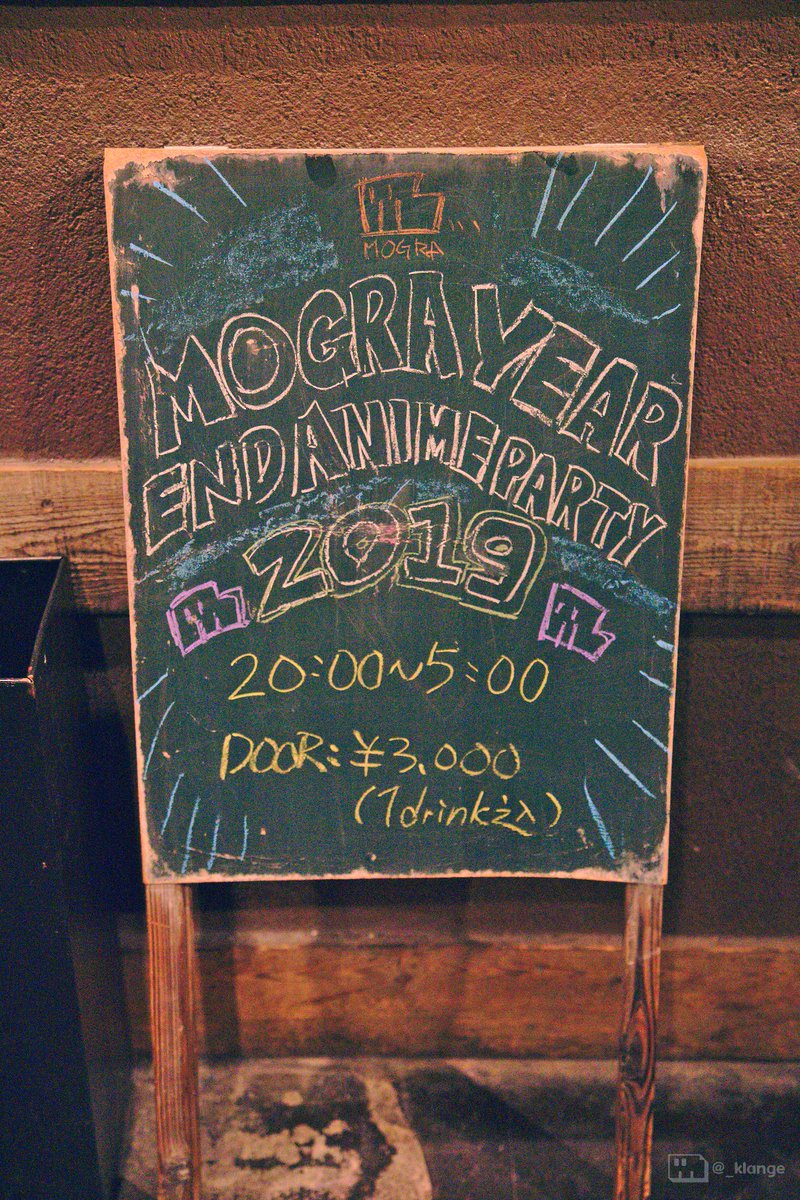 MOGRA
MOGRA YEAR
END ANIME PARTY
2019
20:00~5:00
DOOR: ¥3,000
(1drink込)
@_klange